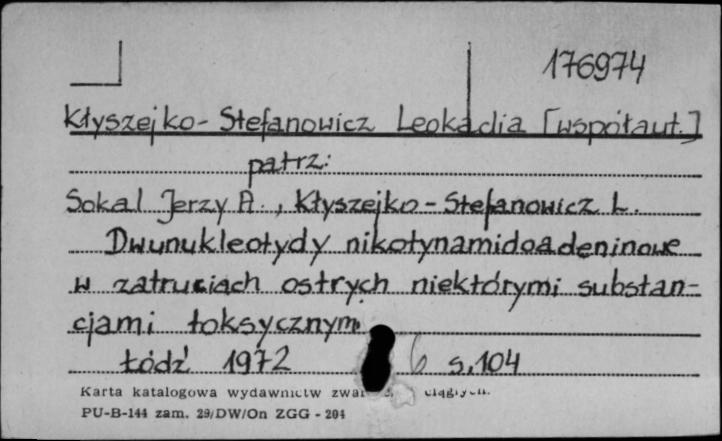 176974
Kłyszejko-Stefanowicz Leokadia [współaut.]
patrz:
Sokal Jerzy A., Kłyszejko-Stefanowicz L.
Dwunukleotydy nikotynamidoadeninowe
w zatruciach ostrych niektórymi substan-
cjami toksycznymi
Łódź 1972 s. 104
Karta katalogowa wydawnictw ciągłych.
PU-B-144 zam. 29/DW/On ZGG - 204